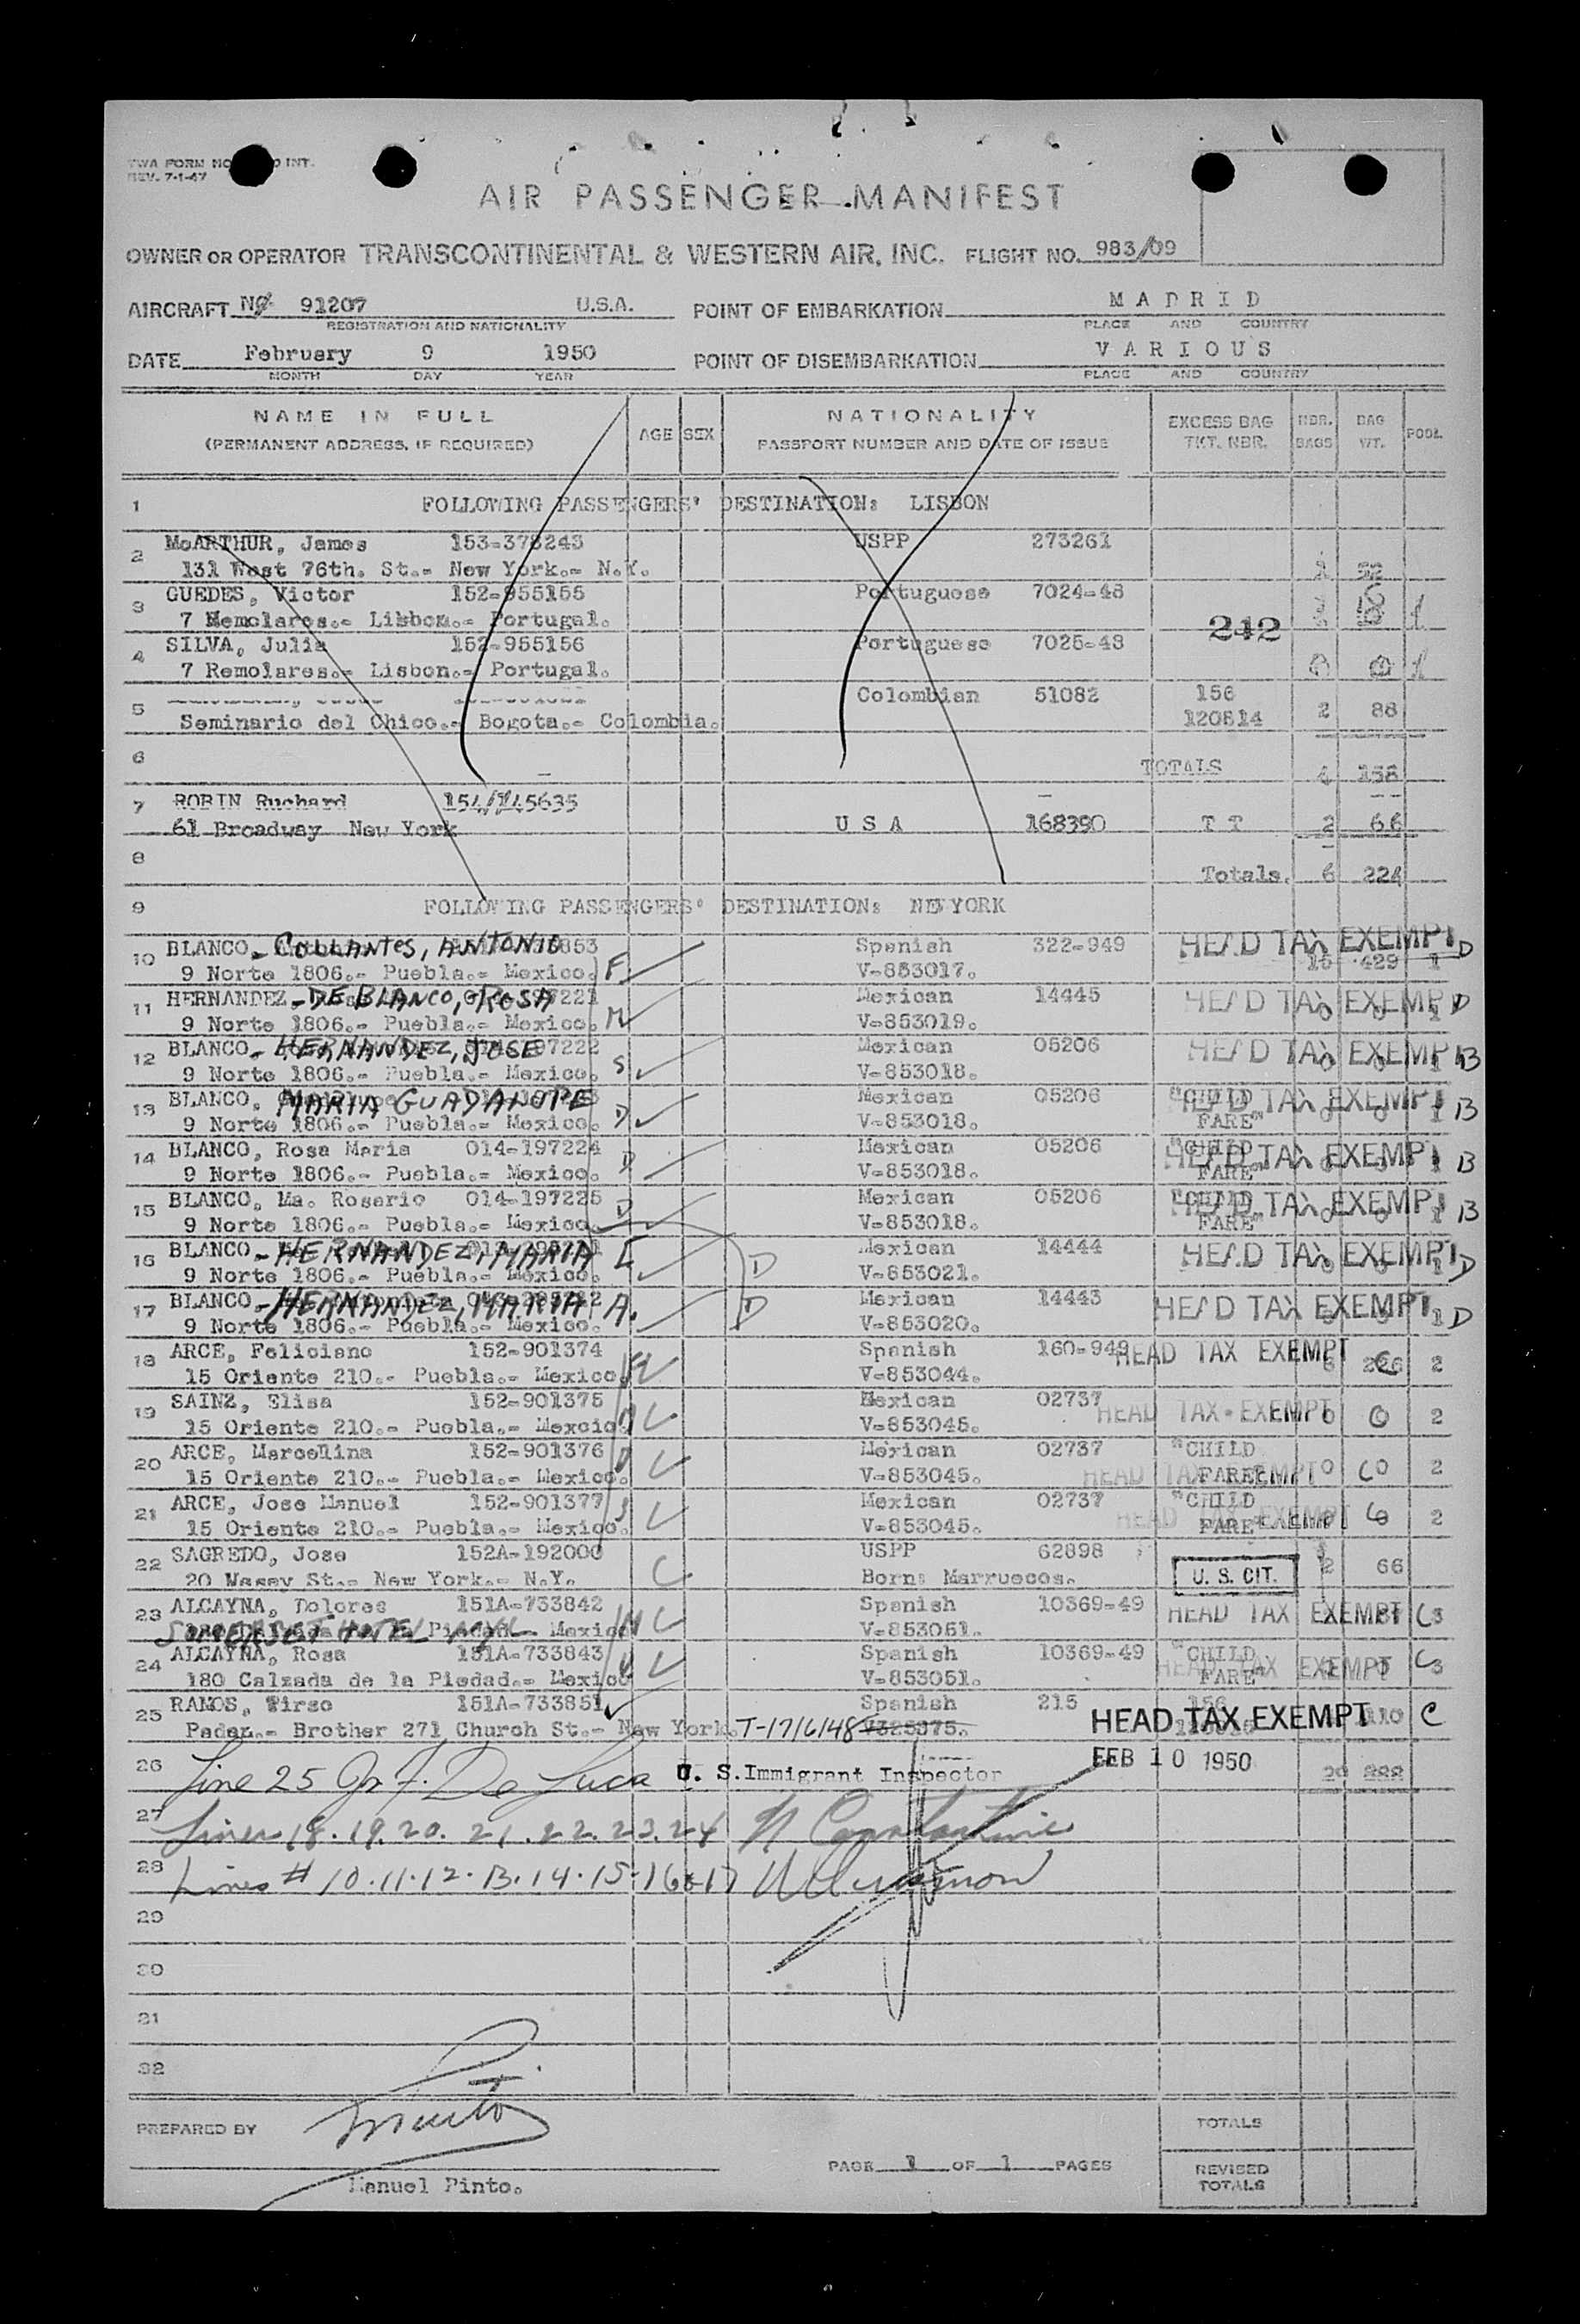 TWA FORM NO INT.
REV. 7-1-47
AIR PASSENGER MANIFEST
OWNER OR OPERATOR TRANSCONTINENTAL & WESTERN AIR, INC. FLIGHT NO. 983/09
AIRCRAFT 91207 U.S.A. POINT OF EMBARKATION MADRID
REGISTRATION AND NATIONALITY PLACE AND COUNTRY
DATE February 9 1950 POINT OF DISEMBARKATION VARIOUS
MONTH DAY YEAR PLACE AND COUNTRY
NAME IN FULL AGE SEX NATIONALITY EXCESS BAG NBR. BAG POOL
(PERMANENT ADDRESS, IF REQUIRED) PASSPORT NUMBER AND DATE OF ISSUE TKT. NBR. BAGS WT.
1 FOLLOWING PASSENGERS' DESTINATION: LISBON
2 McARTHUR, James USPP 273261
131 West 76th. St.- New York.- N.Y.
3 GUEDES, Victor 152-955155 Portuguese 7024-48
7 Lisbon.- Portugal.
242
4 SILVA, Julia 152-955156 Portuguese 7025-48
7 Remolares.- Lisbon.- Portugal.
5 Colombian 51082 156
Seminario del Chico.- Bogota.- Colombia. 120514 2 88
6 TOTALS 158
7 ROBIN Ruchard 154/145635
61 Broadway New York U S A 168390 T T 2 66
8 Totals. 6 224
9 FOLLOWING PASSENGERS' DESTINATION: NEW YORK
10 BLANCO - COLLANTES, ANTONIO Spanish 322-949 HEAD TAX EXEMPT D
9 Norte 1806.- Puebla.- Mexico. F V-853017. 15 429 1
11 HERNANDEZ - DE BLANCO, ROSA Mexican 14445 HEAD TAX EXEMPT D
9 Norte 1806.- Puebla.- Mexico. M V-853019.
12 BLANCO - HERNANDEZ, JOSE Mexican 05206 HEAD TAX EXEMPT B
9 Norte 1806.- Puebla.- Mexico. S V-853018.
13 BLANCO, MARIA GUADALOPE Mexican 05206 "CHILD HEAD TAX EXEMPT B
9 Norte 1806.- Puebla.- Mexico. D V-853018. FARE"
14 BLANCO, Rosa Maria 014-197224 Mexican 05206 "CHILD HEAD TAX EXEMPT B
9 Norte 1806.- Puebla.- Mexico. D V-853018. FARE"
15 BLANCO, Ma. Rosario 014-197225 Mexican 05206 "CHILD HEAD TAX EXEMPT B
9 Norte 1806.- Puebla.- Mexico. D V-853018. FARE"
16 BLANCO - HERNANDEZ, MARIA Mexican 14444 HEAD TAX EXEMPT D
9 Norte 1806.- Puebla.- Mexico. D V-853021.
17 BLANCO - HERNANDEZ, MARIA A. Mexican 14443 HEAD TAX EXEMPT D
9 Norte 1806.- Puebla.- Mexico. D V-853020.
18 ARCE, Feliciano 152-901374 Spanish 160-949 HEAD TAX EXEMPT
15 Oriente 210.- Puebla.- Mexico. V-853044. 2
19 SAINZ, Elisa 152-901375 Mexican 02737 HEAD TAX EXEMPT
15 Oriente 210.- Puebla.- Mexcio. V-853045. 0 2
20 ARCE, Marcelina 152-901376 Mexican 02737 "CHILD
15 Oriente 210.- Puebla.- Mexico. V-853045. HEAD TAX EXEMPT FARE" 0 0 2
21 ARCE, Jose Manuel 152-901377 Mexican 02737 "CHILD
15 Oriente 210.- Puebla.- Mexico. V-853045. HEAD TAX EXEMPT FARE" 2
22 SAGREDO, Jose 152A-192000 USPP 62898
20 Wesey St.- New York.- N.Y. C Born: Marruecos. U. S. CIT. 2 66
23 ALCAYNA, Dolores 151A-733842 Spanish 10369-49 HEAD TAX EXEMPT C 3
SOMERSET HOTEL Mexico V-853051.
24 ALCAYNA, Rosa 151A-733843 Spanish 10369-49 "CHILD HEAD TAX EXEMPT C 3
180 Calzada de la Piedad.- Mexico V-853051. FARE"
25 RAMOS, Tirso 151A-733851 Spanish 215 156 HEAD TAX EXEMPT C
Brother 271 Church St.- New York. T-1716148 V325375. 110
26 Line 25 De Luca U. S. Immigrant Inspector FEB 10 1950
27 Lines 18. 19. 20. 21. 22. 23. 24
28 Lines # 10. 11. 12. 13. 14. 15. 16 17
29
30
31
32
PREPARED BY TOTALS
PAGE 1 OF 1 PAGES REVISED TOTALS
Manuel Pinto.